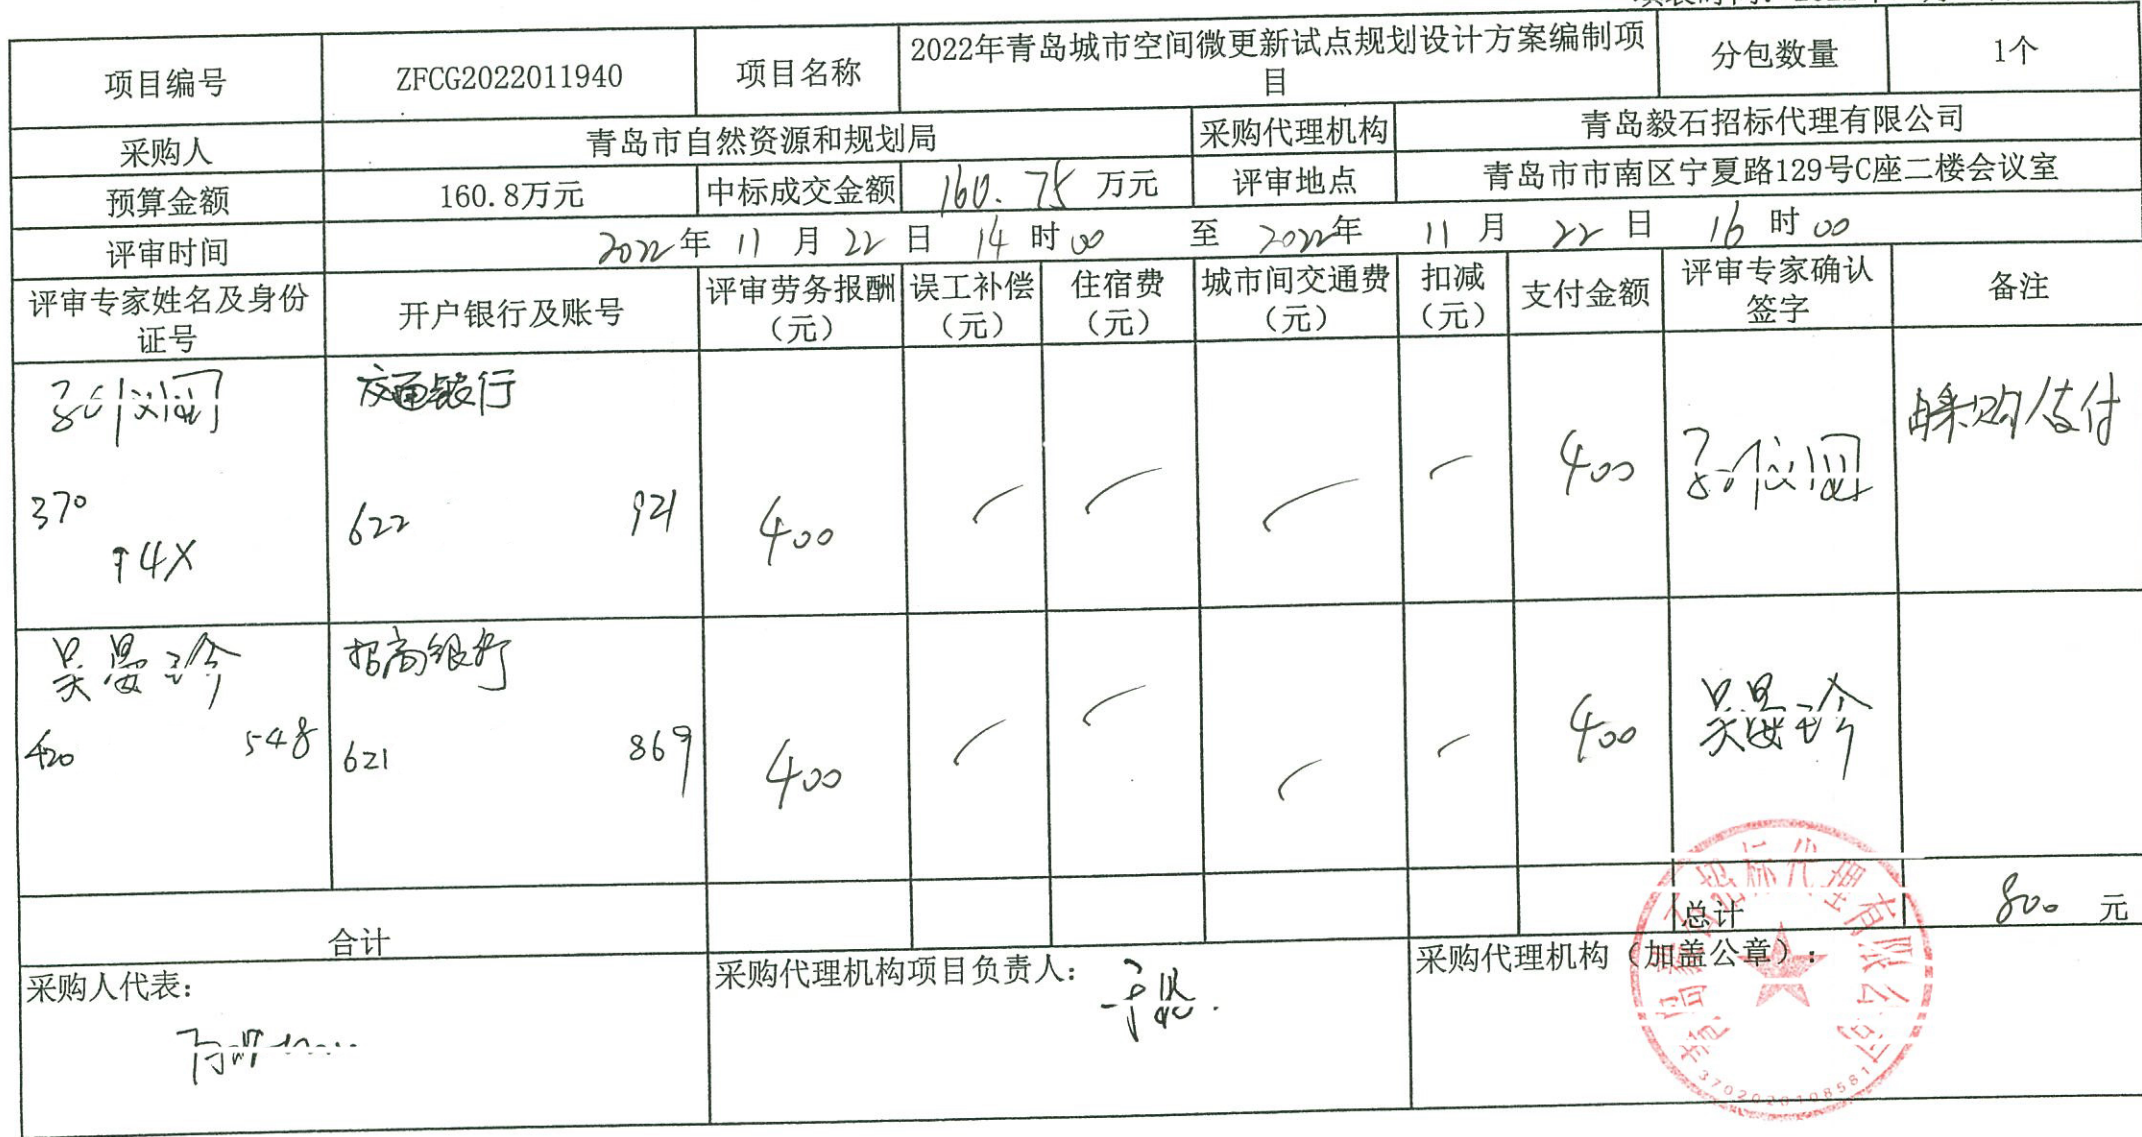 项目编号 ZFCG2022011940 项目名称 2022年青岛城市空间微更新试点规划设计方案编制项
目 分包数量 1个
采购人 青岛市自然资源和规划局 采购代理机构 青岛毅石招标代理有限公司
预算金额 160.8万元 中标成交金额 160.75 万元 评审地点 青岛市市南区宁夏路129号C座二楼会议室
评审时间 2022年 11 月 22 日 14 时 00 至 2022年 11 月 22 日 16 时 00
评审专家姓名及身份
证号
开户银行及账号
评审劳务报酬
(元)
误工补偿
(元)
住宿费
(元)
城市间交通费
(元)
扣减
(元)
支付金额
评审专家确认
签字
备注
交通银行
370
4X
622 921
400
400
由采购人支付
吴晏珍
420 548
招商银行
621 869
400
400
吴晏珍
合计 总计 800 元
采购人代表:
采购代理机构项目负责人:
采购代理机构(加盖公章):
青岛毅石招标代理有限公司